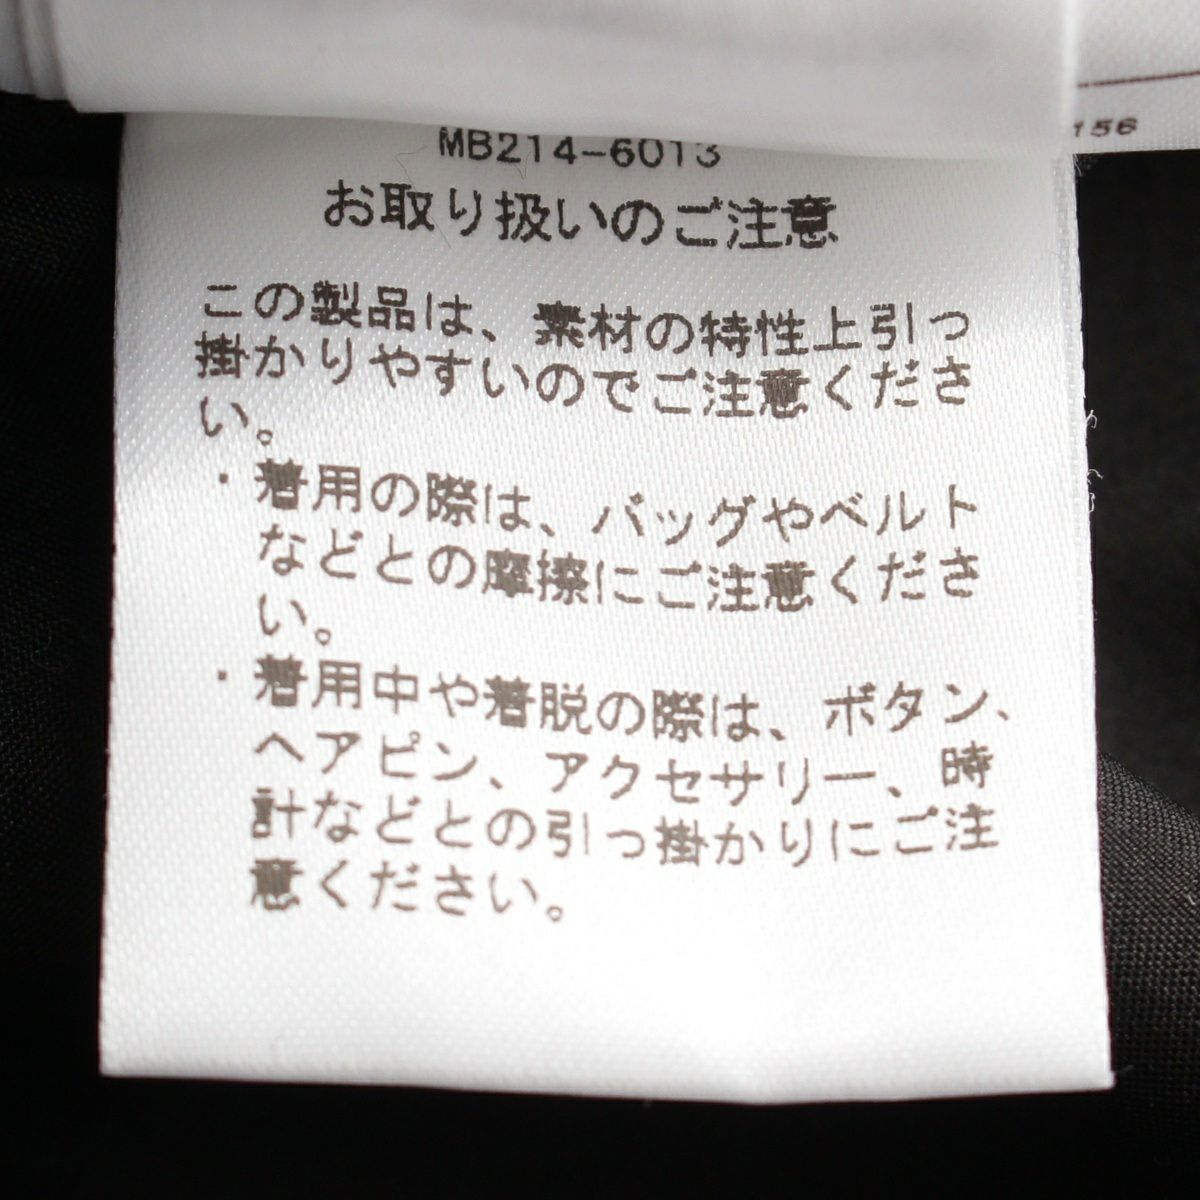 156
MB214-6013
お取り扱いのご注意
この製品は、素材の特性上引っ
掛かりやすいのでご注意くださ
い。
・着用の際は、バッグやベルト
などとの摩擦にご注意くださ
い。
・着用中や着脱の際は、ボタン、
ヘアピン、アクセサリー、時
計などとの引っ掛かりにご注
意ください。